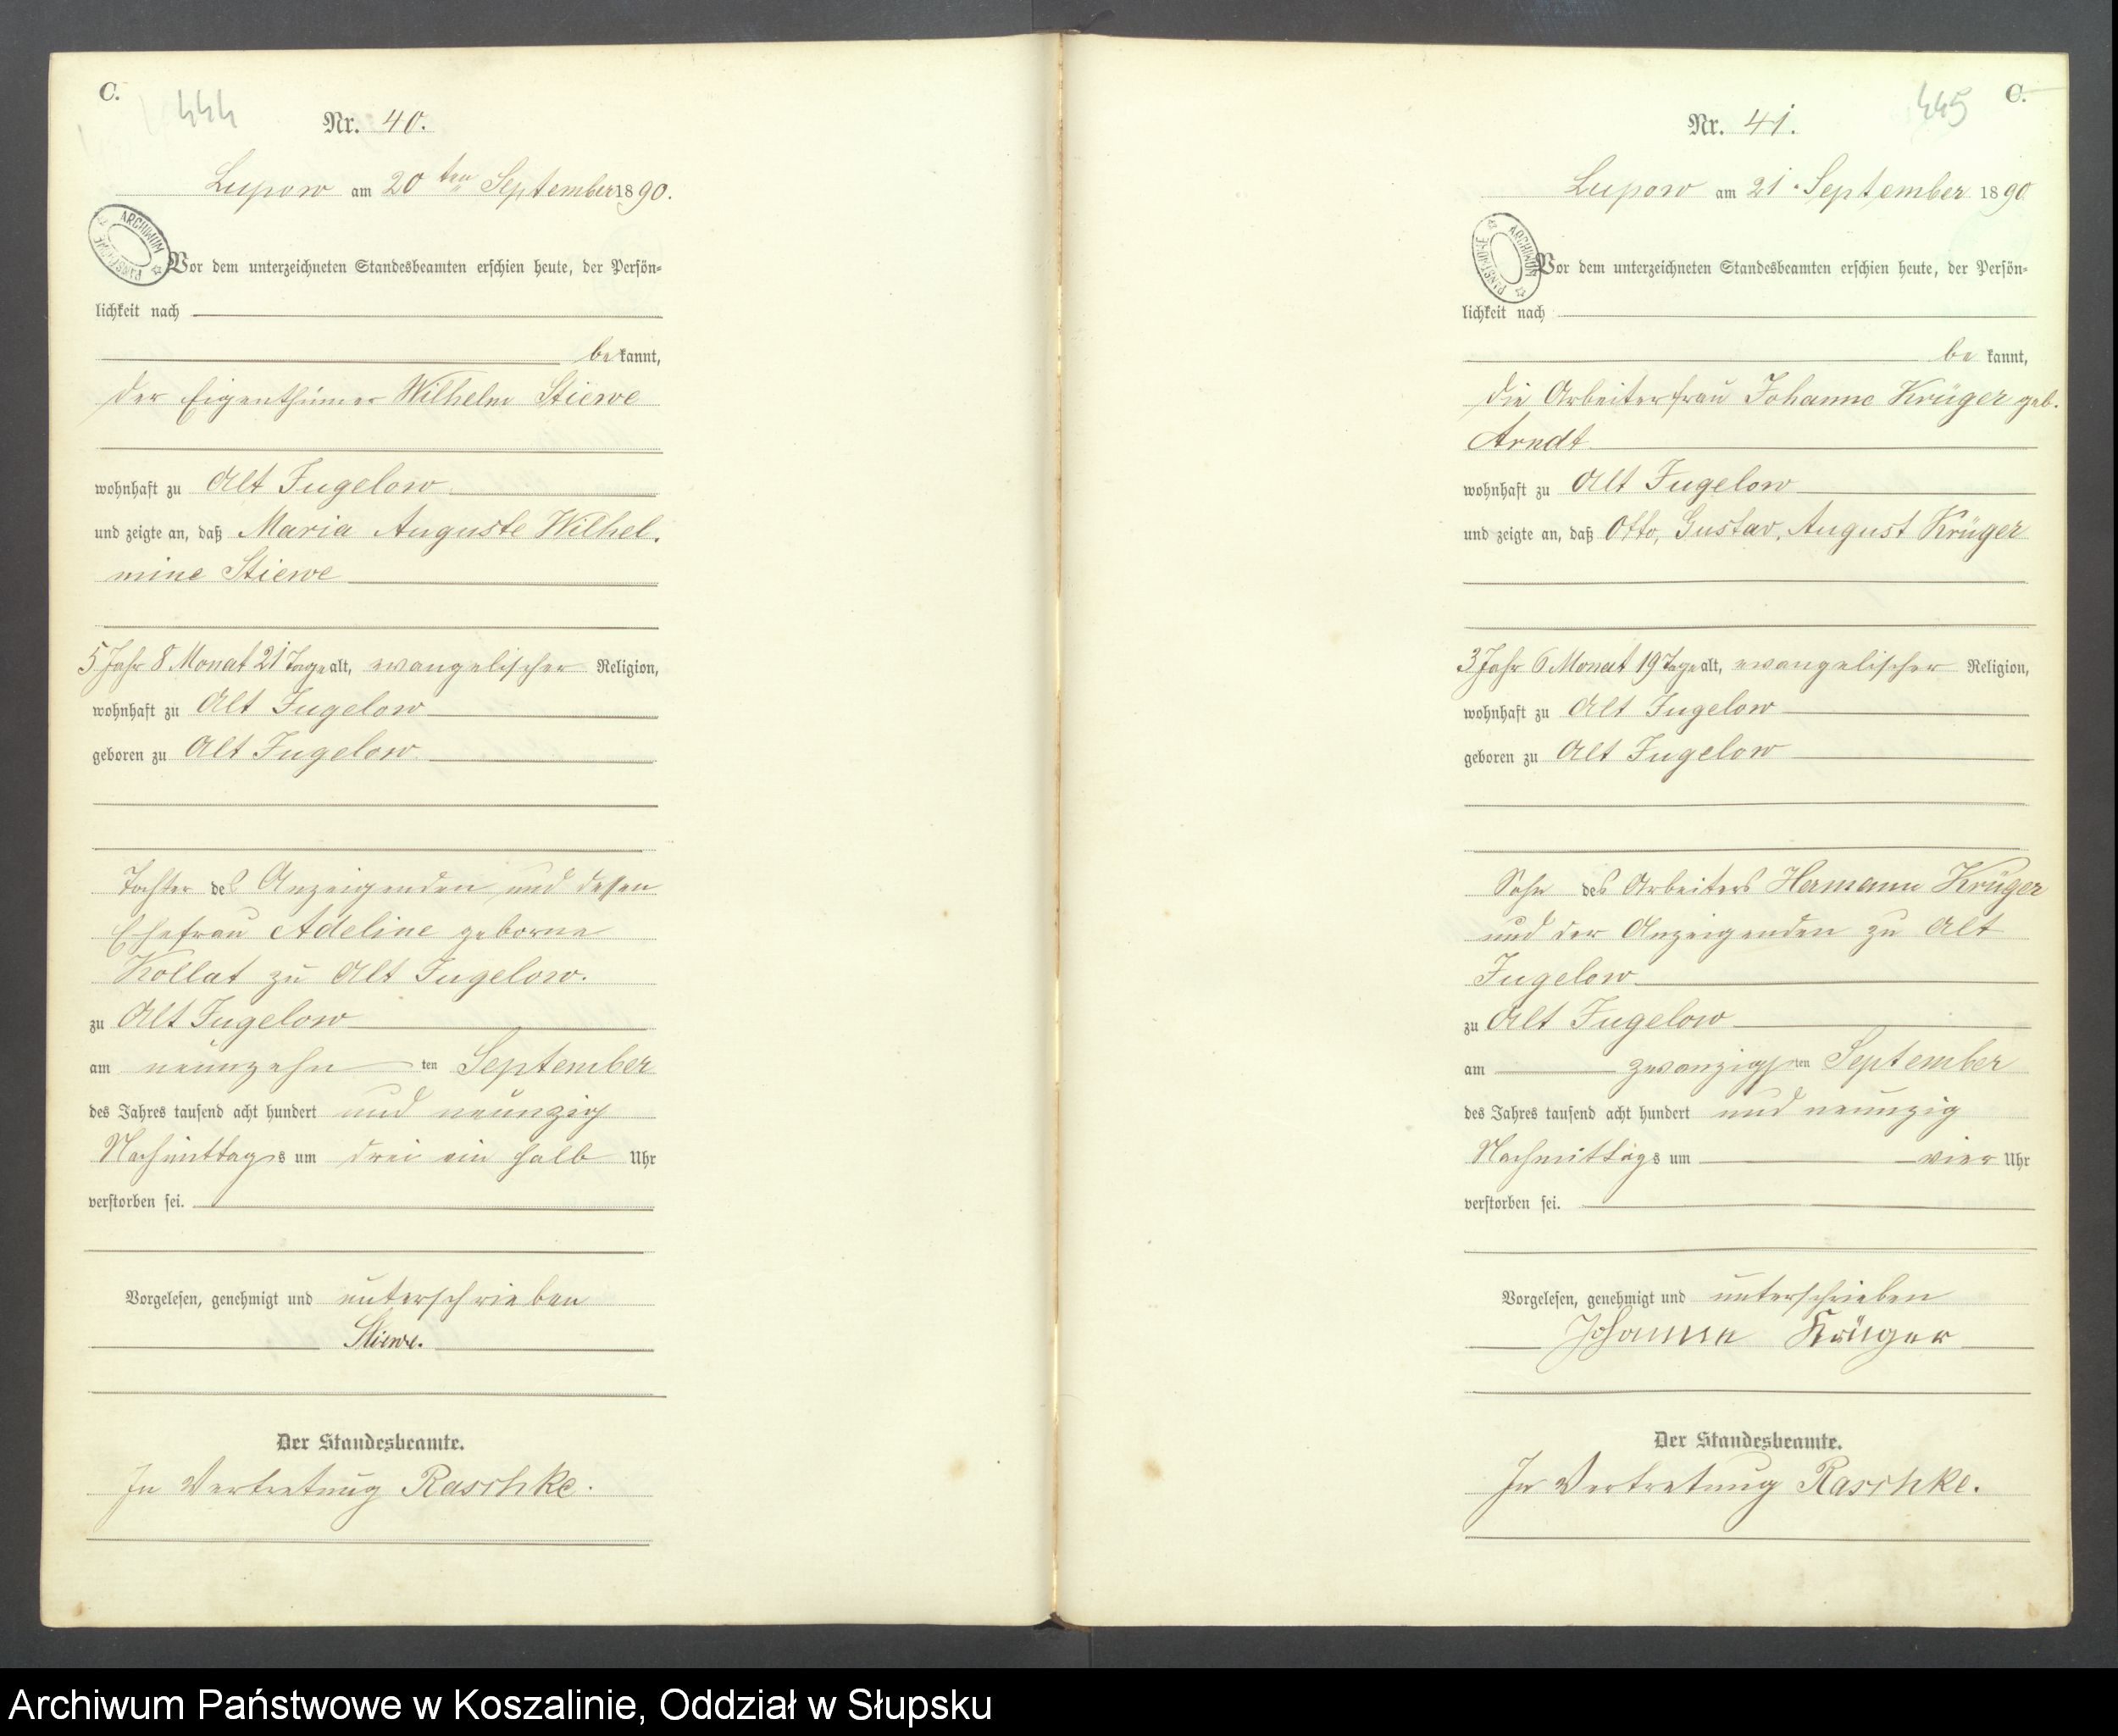 C.
444
Nr. 40.
Lupow am 20ten September 1890.
ARCHIWUM PAŃSTWOWE
Vor dem unterzeichneten Standesbeamten erschien heute, der Persön-
lichkeit nach
bekannt,
der Eigenthümer Wilhelm Stiewe
wohnhaft zu Alt Jugelow
und zeigte an, daß Maria Auguste Wilhel-
mine Stiewe
5 Jahr 8 Monat 21 Tage alt, evangelischer Religion,
wohnhaft zu Alt Jugelow
geboren zu Alt Jugelow
Tochter des Anzeigenden und dessen
Ehefrau Adeline geborne
Kollat zu Alt Jugelow.
zu Alt Jugelow
am neunzehn ten September
des Jahres tausend acht hundert und neunzig
Nachmittags um drei ein halb Uhr
verstorben sei.
Vorgelesen, genehmigt und unterschrieben
Stiewe.
Der Standesbeamte.
In Vertretung Raschke.
445
C.
Nr. 41.
Lupow am 21. September 1890
ARCHIWUM PAŃSTWOWE
Vor dem unterzeichneten Standesbeamten erschien heute, der Persön-
lichkeit nach
bekannt,
die Arbeiterfrau Johanne Krüger geb.
Arndt
wohnhaft zu Alt Jugelow
und zeigte an, daß Otto, Gustav, August Krüger
3 Jahr 6 Monat 19 Tage alt, evangelischer Religion,
wohnhaft zu Alt Jugelow
geboren zu Alt Jugelow
Sohn des Arbeiters Hermann Krüger
und der Anzeigenden zu Alt
Jugelow
zu Alt Jugelow
am zwanzigsten September
des Jahres tausend acht hundert und neunzig
Nachmittags um vier Uhr
verstorben sei.
Vorgelesen, genehmigt und unterschrieben
Johanne Krüger
Der Standesbeamte.
In Vertretung Raschke.
Archiwum Państwowe w Koszalinie, Oddział w Słupsku